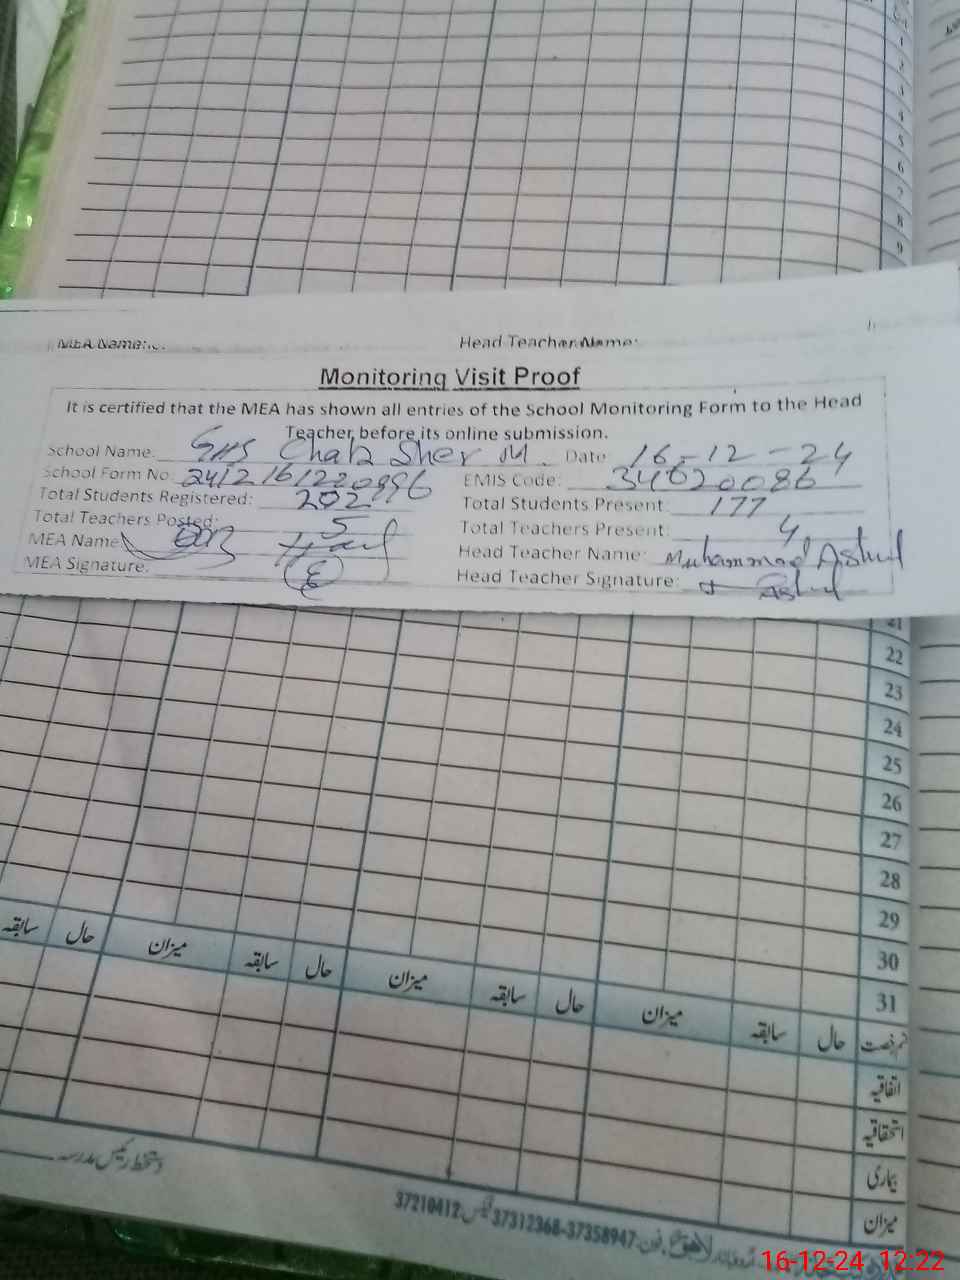 1
2
3
4
5
6
7
8
9
MEA Name: Head Teacher Name:
Monitoring Visit Proof
It is certified that the MEA has shown all entries of the School Monitoring Form to the Head
Teacher before its online submission.
School Name: GHS Chak Sher M. Date: 16-12-24
School Form No: 2412161220996 EMIS Code: 34620086
Total Students Registered: 202 Total Students Present: 177
Total Teachers Posted: 5 Total Teachers Present: 4
MEA Name Head Teacher Name: Muhammad Ashraf
MEA Signature: Head Teacher Signature:
21
22
23
24
25
26
27
28
29
30
31
حال سابقہ میزان حال سابقہ میزان حال سابقہ میزان حال سابقہ
اتفاقیہ
استحقاقیہ
بیماری
میزان
دستخط رئیس مدرسہ
لاہور فون: 37312368-37358947 فیکس: 37210412
16-12-24 12:22